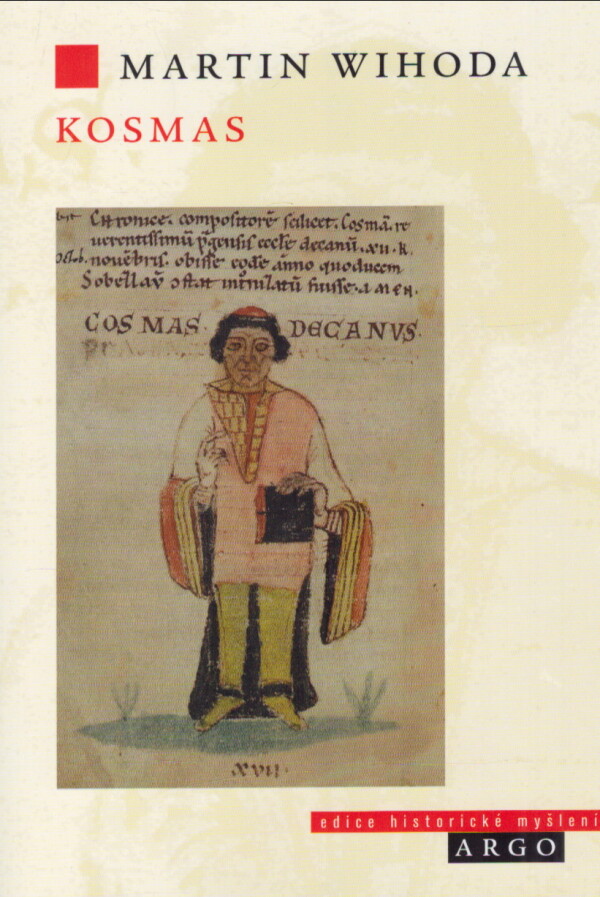 MARTIN WIHODA
KOSMAS
Chronice. compositorē scilicet. Cosmā. re
uerentissimū p̄gensis eccle decanū. xii. k.
novēbris. obisse eodē anno quo ducem
Sobellaū
fuisse. AMEN.
COSMAS. DECANVS.
XVII.
edice historické myšlení
ARGO